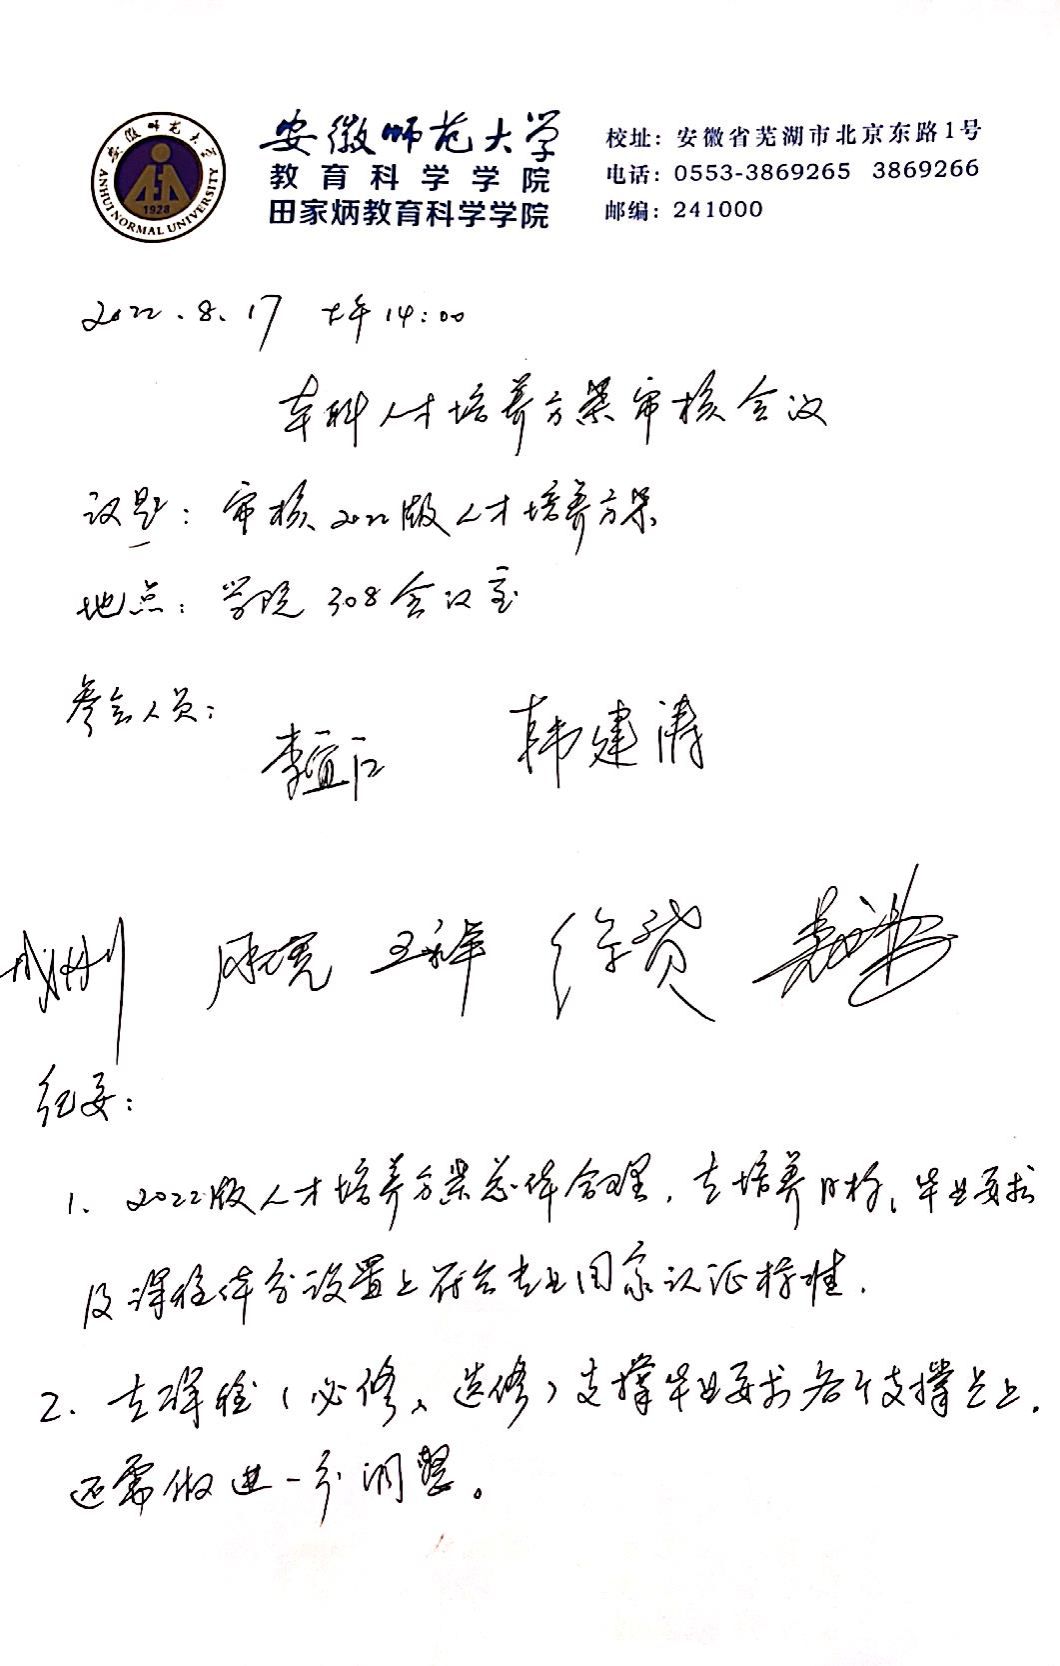 安徽师范大学
ANHUI NORMAL UNIVERSITY
1928
安徽师范大学
教育科学学院
田家炳教育科学学院
校址：安徽省芜湖市北京东路1号
电话：0553-3869265 3869266
邮编：241000
2022.8.17 下午14:00
本科人才培养方案审核会议
议题：审核2022版人才培养方案
地点：学院308会议室
参会人员：
李宜江 韩建涛
周宽 王永军 徐贤
纪要：
1、2022版人才培养方案总体合理，在培养目标、毕业要求
及课程体系设置上符合专业国家认证标准.
2、在课程（必修、选修）支撑毕业要求各个支撑点上，
还需做进一步调整。